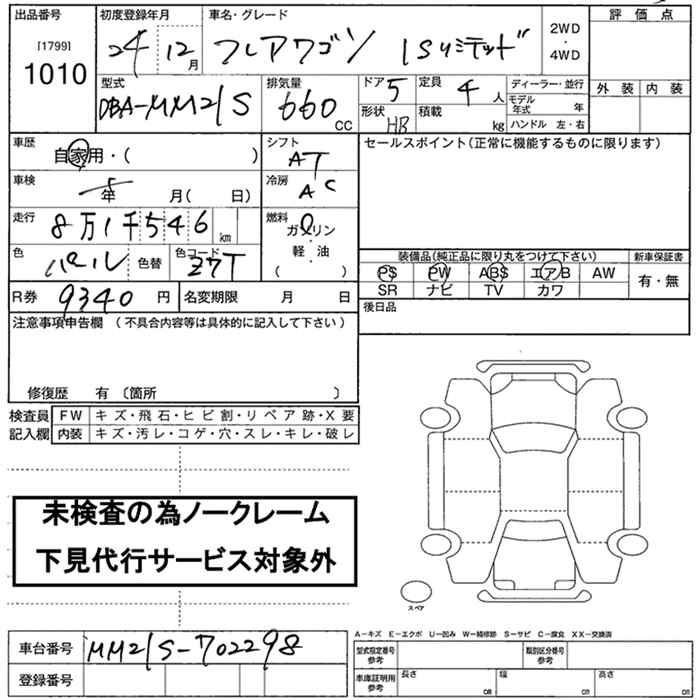 出品番号 初度登録年月 車名・グレード 評価点
[1799]
1010 24 12月 フレアワゴン ISリミテッド 2WD・4WD
型式 排気量 ドア 5 定員 4 人 ディーラー・並行 外装 内装
DBA-MM21S 660 CC 形状 HB 積載 kg モデル年式 年
ハンドル 左・右
車歴 自家用・( ) シフト AT セールスポイント(正常に機能するものに限ります)
車検 年 月( 日) 冷房 AC
走行 8万1千546 km 燃料 ガソリン・軽・油 ( )
色 パール 色替 色コード Z7T 装備品(純品正に限り丸をつけて下さい) 新車保証書
PS PW ABS エアB AW 有・無
SR ナビ TV カワ
R券 9340 円 名変期限 月 日
後日品
注意事項申告欄 (不具合内容等は具体的に記入して下さい)
修復歴 有 〔箇所 〕
検査員記入欄 FW キズ・飛石・ヒビ割・リペア跡・X要
内装 キズ・汚レ・コゲ・穴・スレ・キレ・破レ
未検査の為ノークレーム
下見代行サービス対象外
スペア
A-キズ E-エクボ U-凹み W-補修跡 S-サビ C-腐食 XX-交換済
車台番号 MM21S-702298 型式指定番号 参考 類別区分番号 参考
登録番号 車庫証明用 参考 長さ cm 幅 cm 高さ cm